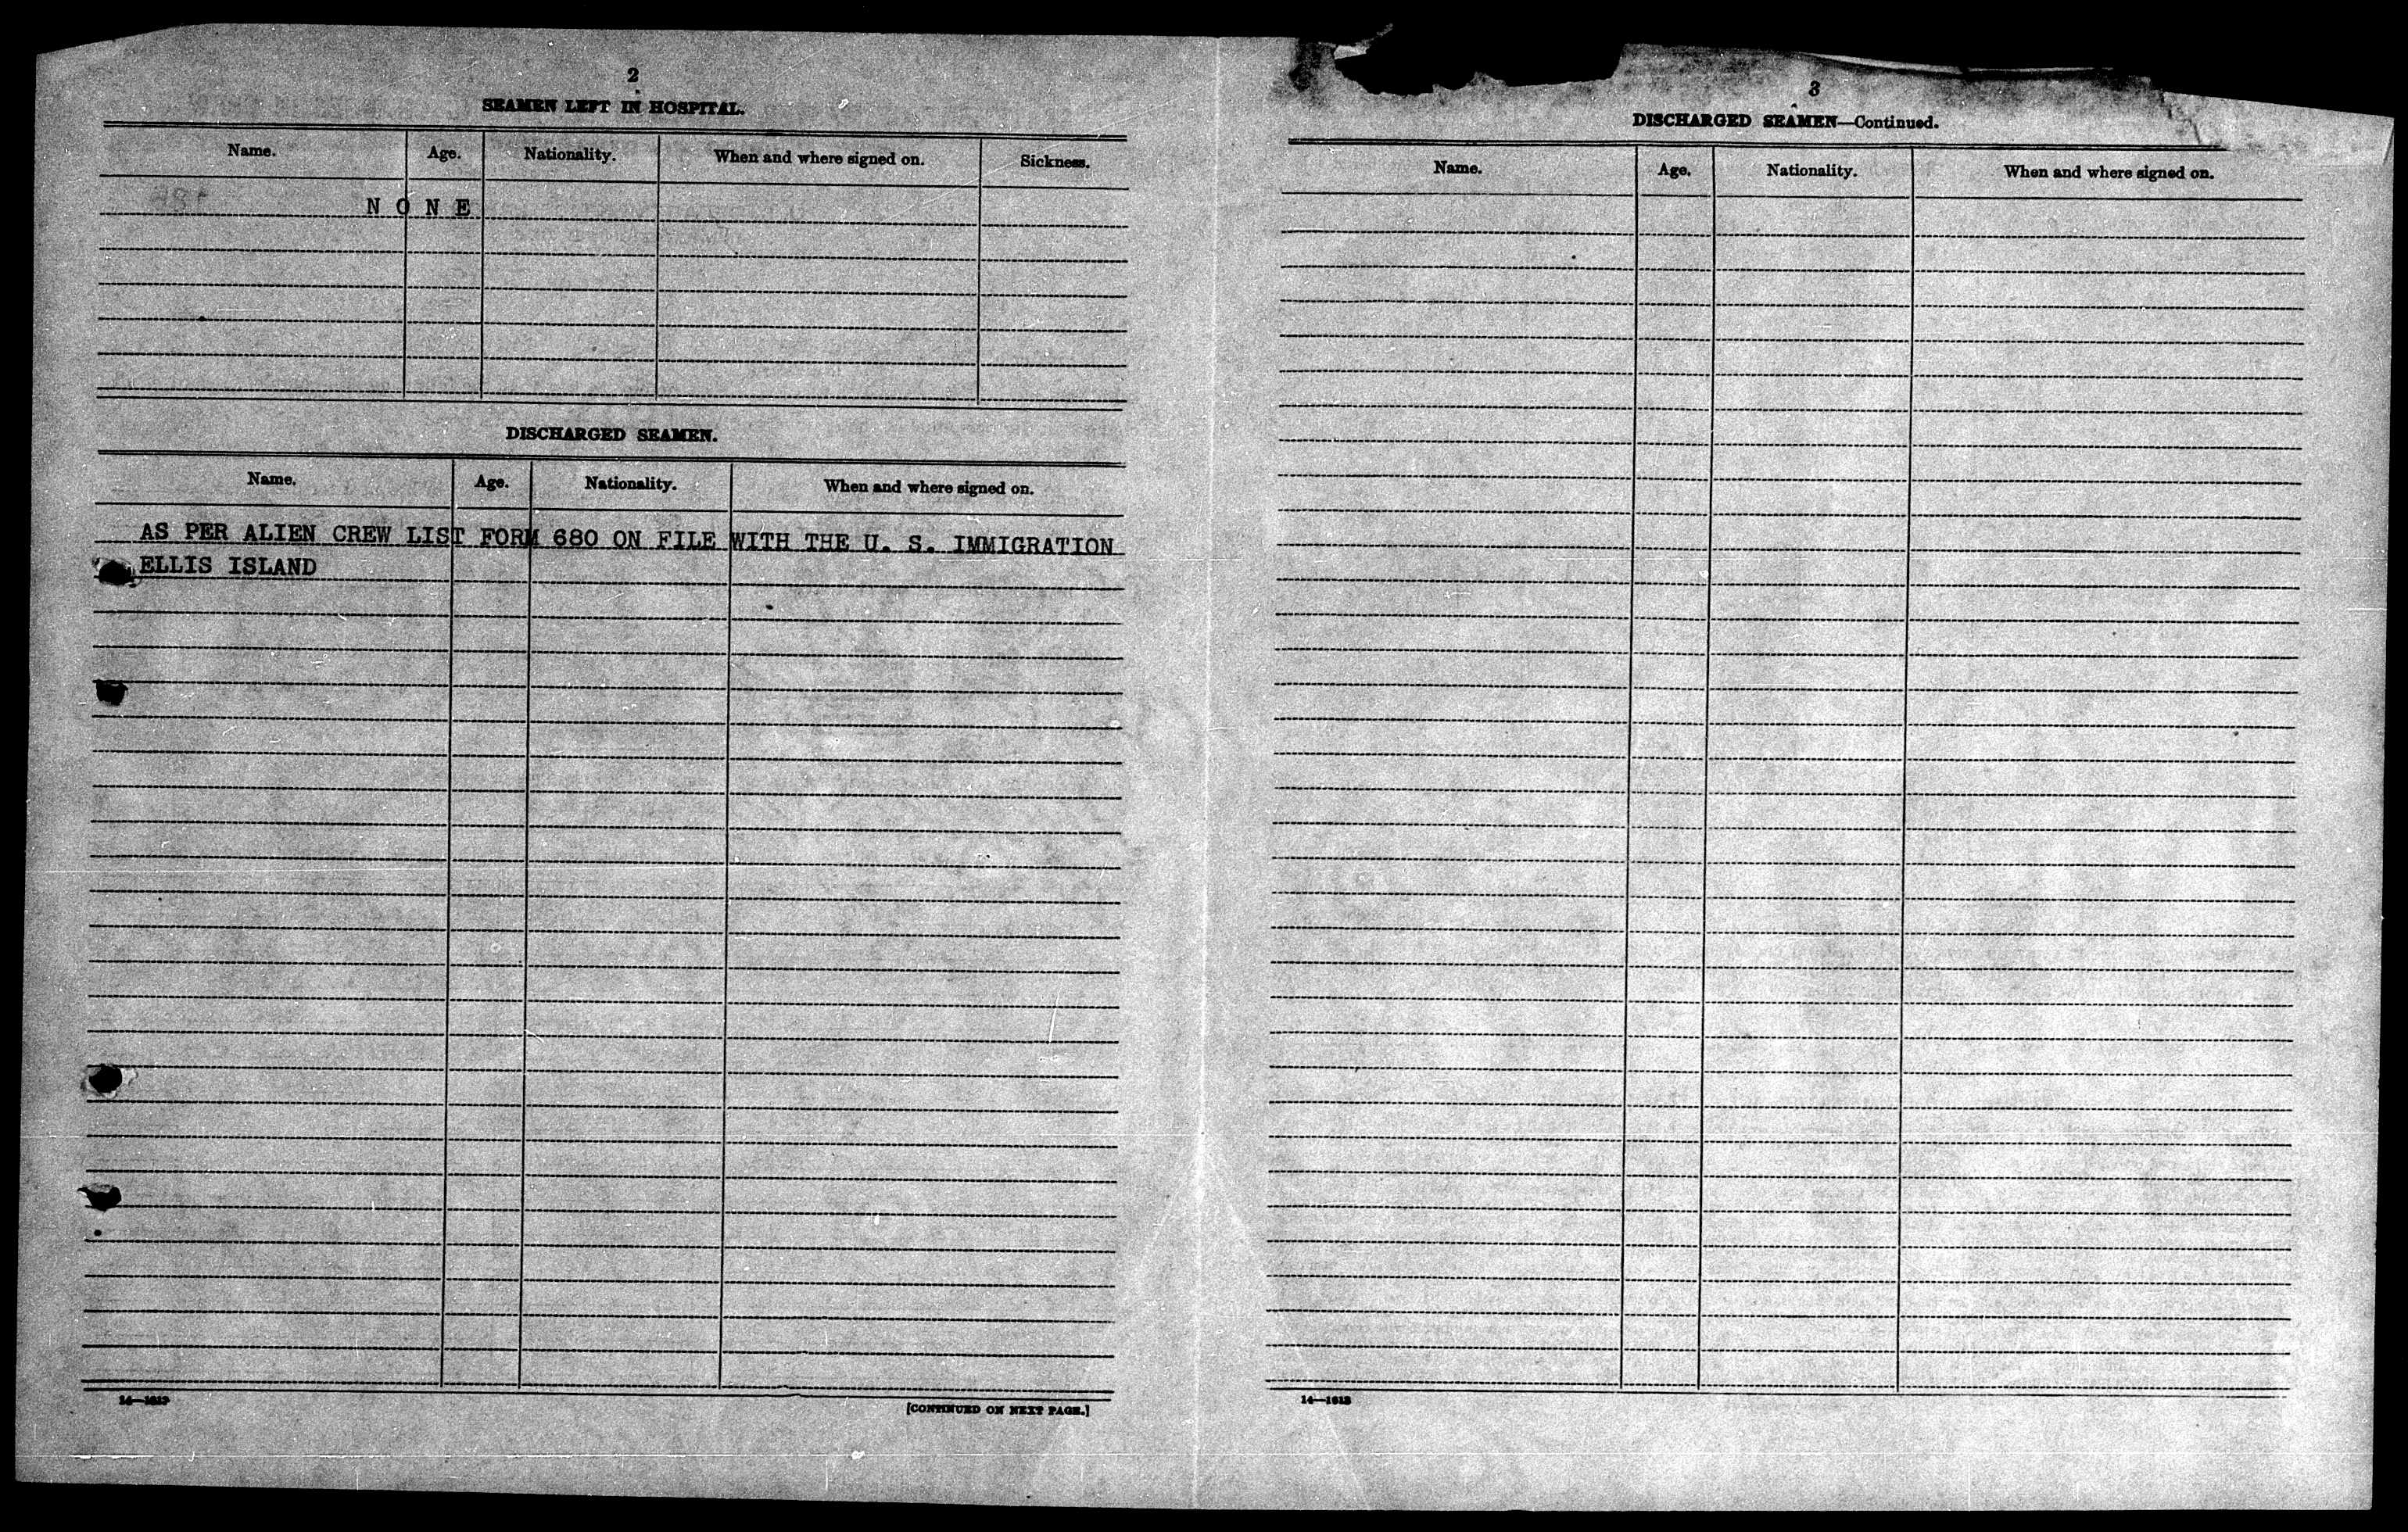 2
SEAMEN LEFT IN HOSPITAL.
Name. Age. Nationality. When and where signed on. Sickness.
N O N E
DISCHARGED SEAMEN.
Name. Age. Nationality. When and where signed on.
AS PER ALIEN CREW LIST FORM 680 ON FILE WITH THE U. S. IMMIGRATION
ELLIS ISLAND
[CONTINUED ON NEXT PAGE.]
3
DISCHARGED SEAMEN—Continued.
Name. Age. Nationality. When and where signed on.